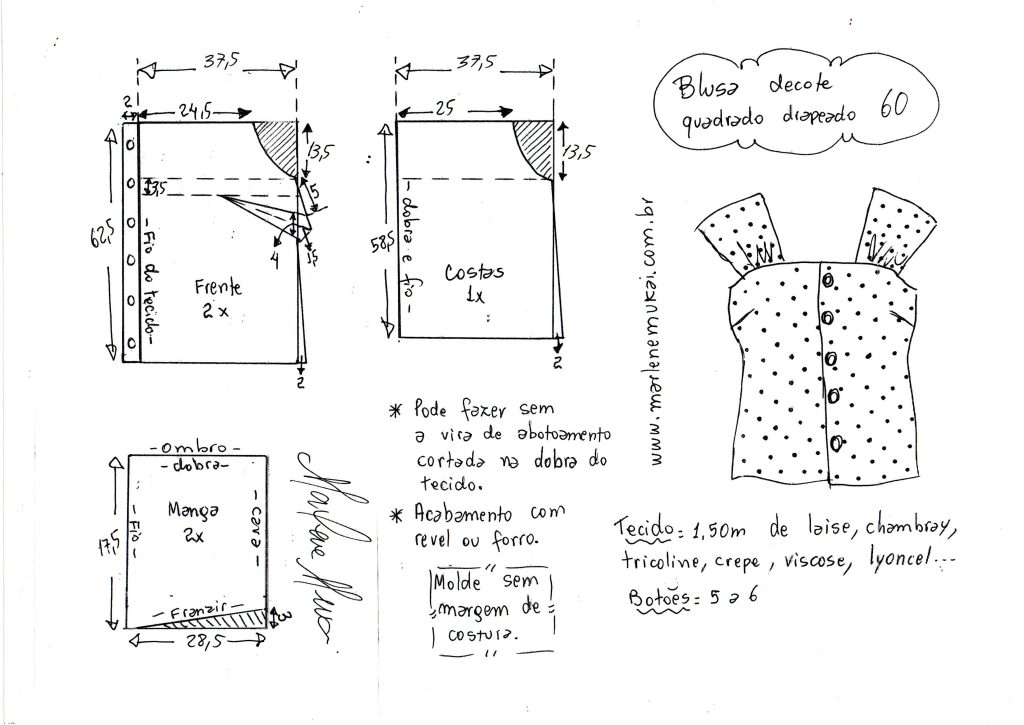 37,5
2
24,5
13,5
3,5
5
4
1,5
62,5
- Fio do tecido -
Frente
2x
2
37,5
25
13,5
58,5
- dobra e fio -
Costas
1x
2
Blusa decote
quadrado drapeado 60
www.marlenemukai.com.br
- ombro -
- dobra -
17,5
- Fio -
Manga
2x
- cava -
- Franzir -
3
28,5
* Pode fazer sem
a vira de abotoamento
cortada na dobra do
tecido.
* Acabamento com
revel ou forro.
Molde sem
margem de
costura.
Tecido = 1,50m de laise, chambray,
tricoline, crepe, viscose, lyoncel...
Botões = 5 a 6